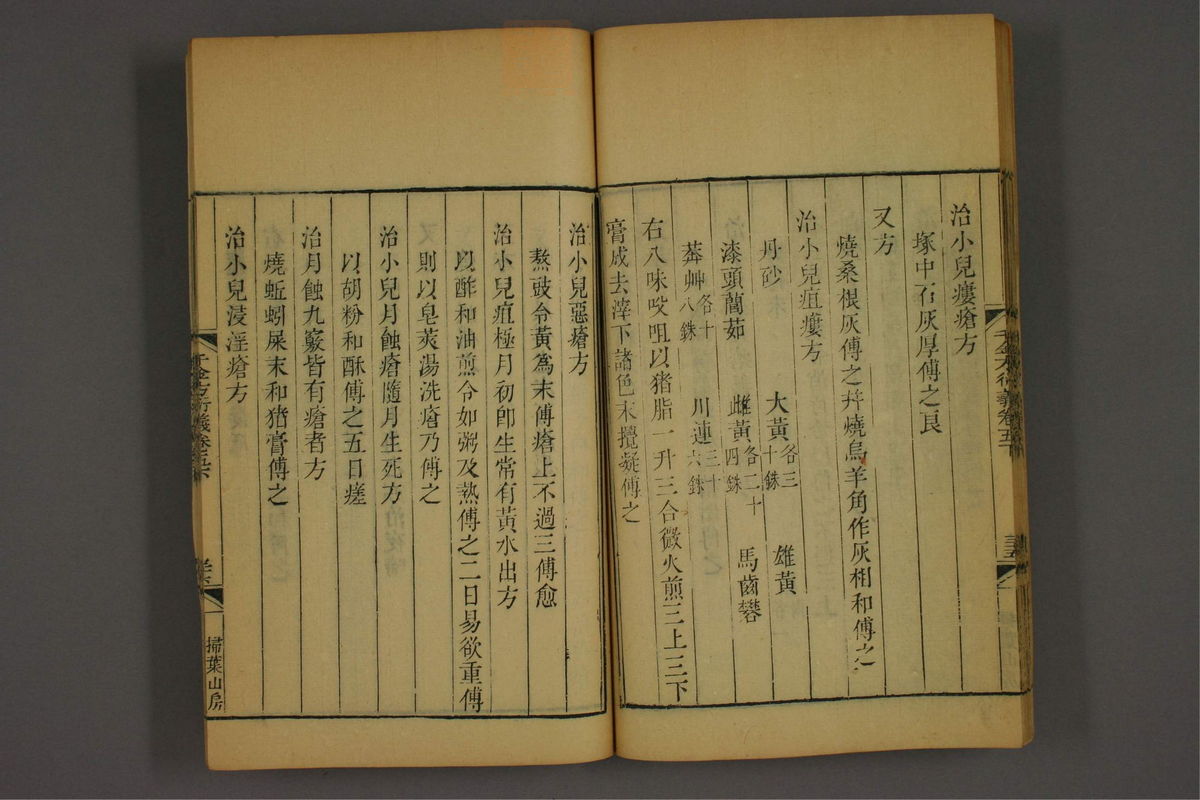 治小兒瘻瘡方
塚中石灰厚傅之良
又方
燒桑根灰傅之幷燒烏羊角作灰相和傅之
治小兒疽瘻方
丹砂 大黃各三十銖 雄黃
漆頭䕡茹 雌黃各二十四銖 馬齒礬
莽艸各十八銖 川連三十六銖
右八味㕮咀以猪脂一升三合微火煎三上三下
膏成去滓下諸色末攪凝傅之
治小兒惡瘡方
熬豉令黃爲末傅瘡上不過三傅愈
治小兒疽極月初卽生常有黃水出方
以酢和油煎令如粥及熱傅之二日易欲重傅
則以皂莢湯洗瘡乃傅之
治小兒月蝕瘡隨月生死方
以胡粉和酥傅之五日瘥
治月蝕九竅皆有瘡者方
燒蚯蚓屎末和猪膏傅之
治小兒浸淫瘡方
千金方衍義卷五下
掃葉山房